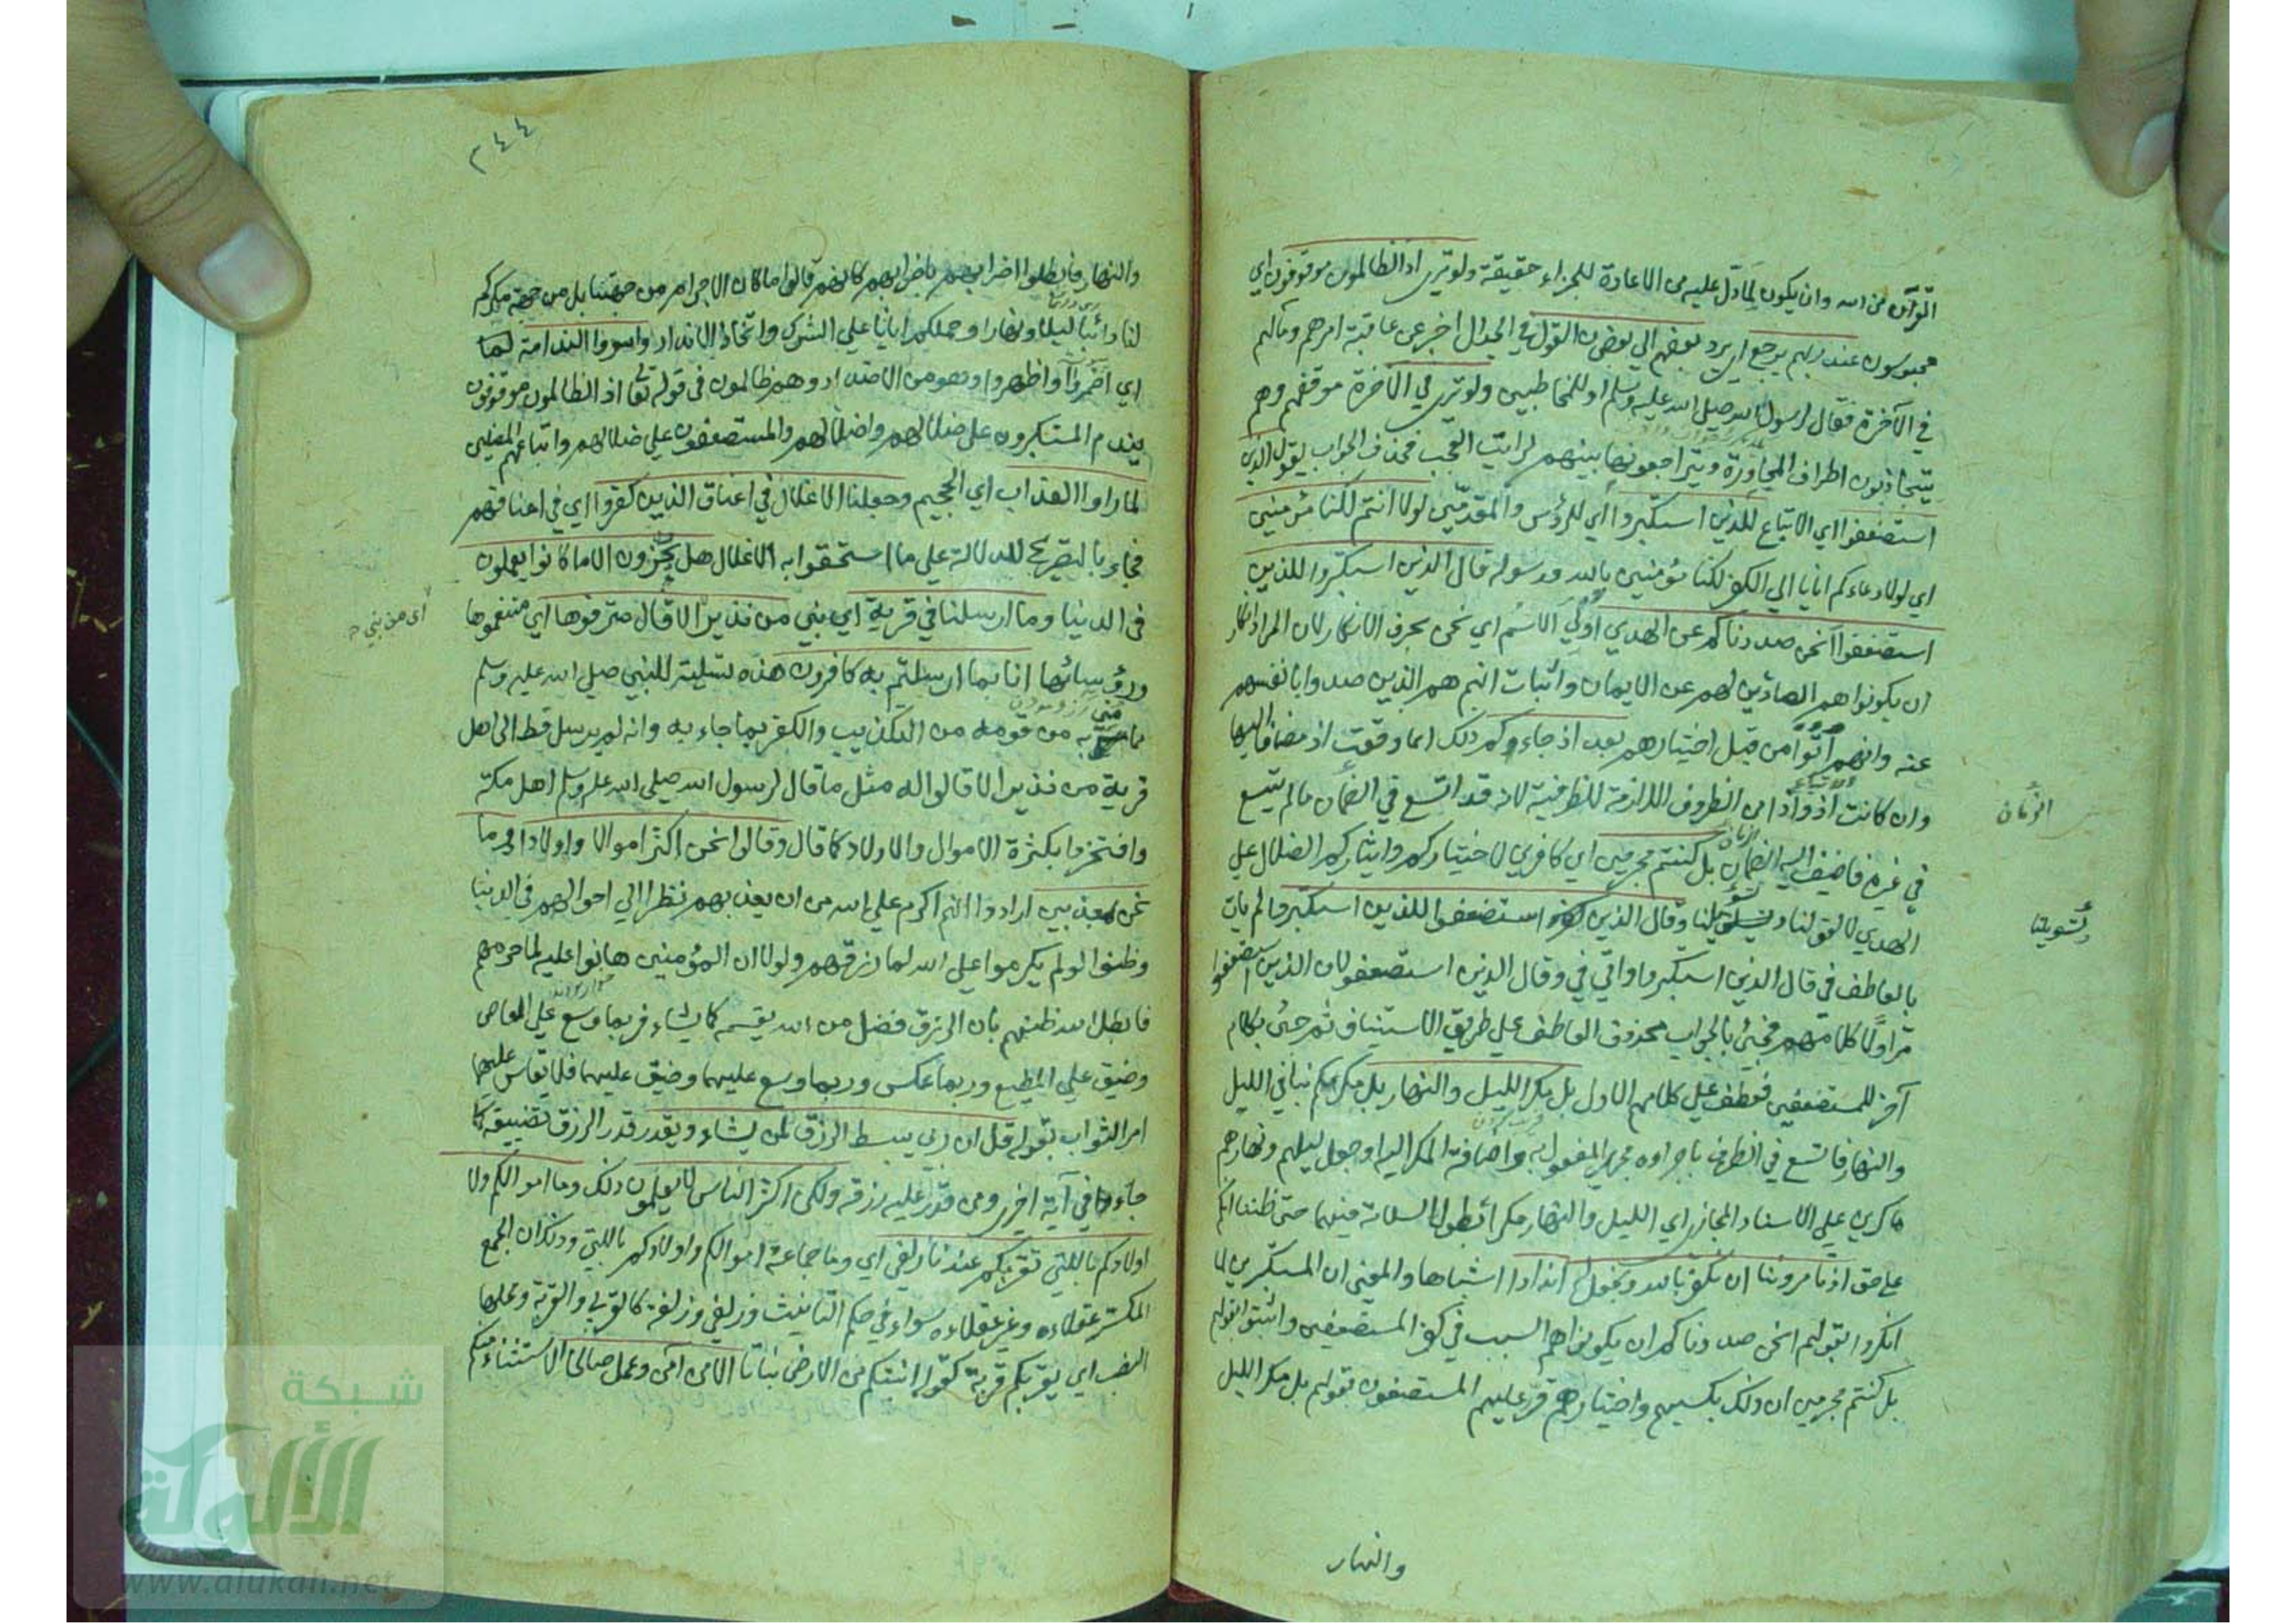 القرآن من الله وان يكون لما دل عليه من الاعادة للجزاء حقيقة ولو ترى اذ الظالمون موقوفون اي
محبوسون عند ربهم يرجع اي يرد بعضهم الي بعض القول في الجدال اخبر عن عاقبة امرهم ومآلهم
في الآخرة فقال لرسول الله صلي الله عليه وسلم او للمخاطبين ولو ترى في الآخرة موقفهم وهم
يتجاذبون اطراف المحاورة ويتراجعونها بينهم لرايت العجب فحذف الجواب يقول الذين
استضعفوا اي الاتباع للذين استكبروا اي للرؤس والمقدمين لولا انتم لكنا مؤمنين
اي لولا دعاءكم ايانا الي الكفر لكنا مؤمنين بالله ورسوله قال الذين استكبروا للذين
استضعفوا انحن صددناكم عن الهدي اولي الاسم اي نحن بحرف الانكار لان المراد انكار
ان يكونوا هم الصادين لهم عن الايمان واثبات انهم هم الذين صدوا بانفسهم
عنه وانهم اتوا من قبل اختيارهم بعد اذ جاءكم ذلك انما وقعت اذ مضافا اليها
وان كانت اذ واذا من الظروف اللازمة للظرفية لانه قد اتسع في الزمان ما لم يتسع
في غيره فاضيف اليه الزمان بل كنتم مجرمين اي كافرين لاختياركم وايثاركم الضلال علي
الهدي لا لقولنا وتسويلنا وقال الذين استضعفوا للذين استكبروا لم يات
بالعاطف في قال الذين استكبروا واتي في وقال الذين استضعفوا لان الذين استضعفوا
مر اولا كلامهم فجيئ بالجواب محذوف العاطف علي طريق الاستيناف ثم جئ بكلام
آخر للمستضعفين فعطف علي كلامهم الاول بل مكر الليل والنهار بل مكركم بنا في الليل
والنهار فاتسع في الظرف باجراءه مجرى المفعول به واضافة المكر اليه او جعل ليلهم ونهارهم
ماكرين علي الاسناد المجازي اي الليل والنهار مكرا بطول السلامة فيهما حتي ظننا انكم
علي حق اذ تامروننا ان نكفر بالله ونجعل له اندادا اشباها والمعني ان المستكبرين لما
انكروا بقولهم انحن صددناكم ان يكونوا هم السبب في كفر المستضعفين واثبتوا بقولهم
بل كنتم مجرمين ان ذلك بكسبهم واختيارهم كر عليهم المستضعفون بقولهم بل مكر الليل
الزمان
وتسويلنا
والنهار
٢٤٤
والنهار فابطلوا اضرابهم باضرابهم كانهم قالوا ما كان الاجرام من جهتنا بل من جهة مكركم
لنا دائبا ليلا ونهارا وحملكم ايانا علي الشرك واتخاذ الانداد واسروا الندامة لما
اي اضمروا او اظهروا وهو من الاضداد وهم ظالمون في قوله تعالي اذ الظالمون موقوفون
يندم المستكبرون علي ضلالهم واضلالهم والمستضعفون علي ضلالهم واتباعهم المضلين
لما راوا العذاب اي الجحيم وجعلنا الاغلال في اعناق الذين كفروا اي في اعناقهم
فجاء بالتصريح للدلالة علي ما استحقوا به الاغلال هل يجزون الا ما كانوا يعملون
في الدنيا وما ارسلنا في قرية اي نبي من نذير الا قال مترفوها اي متنعموها
ورؤسائها انا بما ارسلتم به كافرون هذه تسلية للنبي صلي الله عليه وسلم
مما مني به من قومه من التكذيب والكفر بما جاء به وانه لم يرسل قط الي اهل
قرية من نذير الا قالوا له مثل ما قال لرسول الله صلي الله عليه وسلم اهل مكة
وافتخروا بكثرة الاموال والاولاد كما قال وقالوا نحن اكثر اموالا واولادا وما
نحن بمعذبين ارادوا انهم اكرم علي الله من ان يعذبهم نظرا الي احوالهم في الدنيا
وظنوا لو لم يكرموا علي الله لما رزقهم ولولا ان المؤمنين هانوا عليه لما حرمهم
فابطل الله ظنهم بان الرزق فضل من الله يقسمه كما يشاء فربما وسع علي العاصي
وضيق علي المطيع وربما عكس وربما وسع عليهما وضيق عليهما فلا يقاس عليهما
امر الثواب بقوله قل ان ربي يبسط الرزق لمن يشاء ويقدر قدر الرزق تضييقه كما
جاء في آية اخرى ومن قدر عليه رزقه ولكن اكثر الناس لا يعلمون ذلك وما اموالكم ولا
اولادكم بالتي تقربكم عندنا زلفي اي وما جماعة اموالكم واولادكم بالتي وذلك ان الجمع
المكسر عقلاءه وغير عقلاءه سواء في حكم التانيث وزلفي وزلفة كالقربي والقربة ومحلها
النصب اي يقربكم قربة كقوله انبتكم من الارض نباتا الا من آمن وعمل صالحا الاستثناء من كم
اي من نبي
شبكة
الألوكة
www.alukah.net